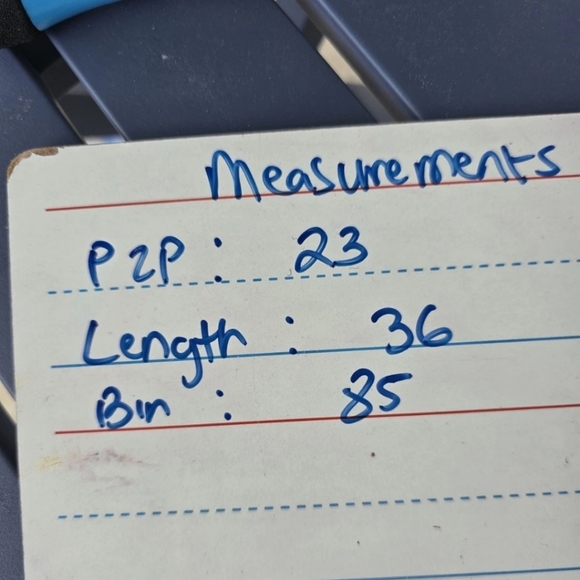 Measurements
P2P: 23
Length: 36
Bin: 85